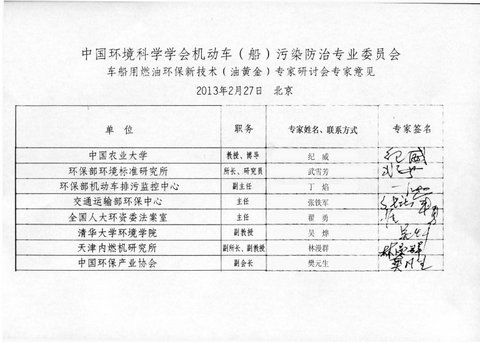 中国环境科学学会机动车（船）污染防治专业委员会
车船用燃油环保新技术（油黄金）专家研讨会专家意见
2013年2月27日 北京
单 位 职务 专家姓名、联系方式 专家签名
中国农业大学 教授、博导 纪 威 纪威
环保部环境标准研究所 所长、研究员 武雪芳
环保部机动车排污监控中心 副主任 丁 焰
交通运输部环保中心 主任 张铁军
全国人大环资委法案室 主任 翟 勇
清华大学环境学院 副教授 吴 烨
天津内燃机研究所 副所长、副教授 林漫群
中国环保产业协会 副会长 樊元生